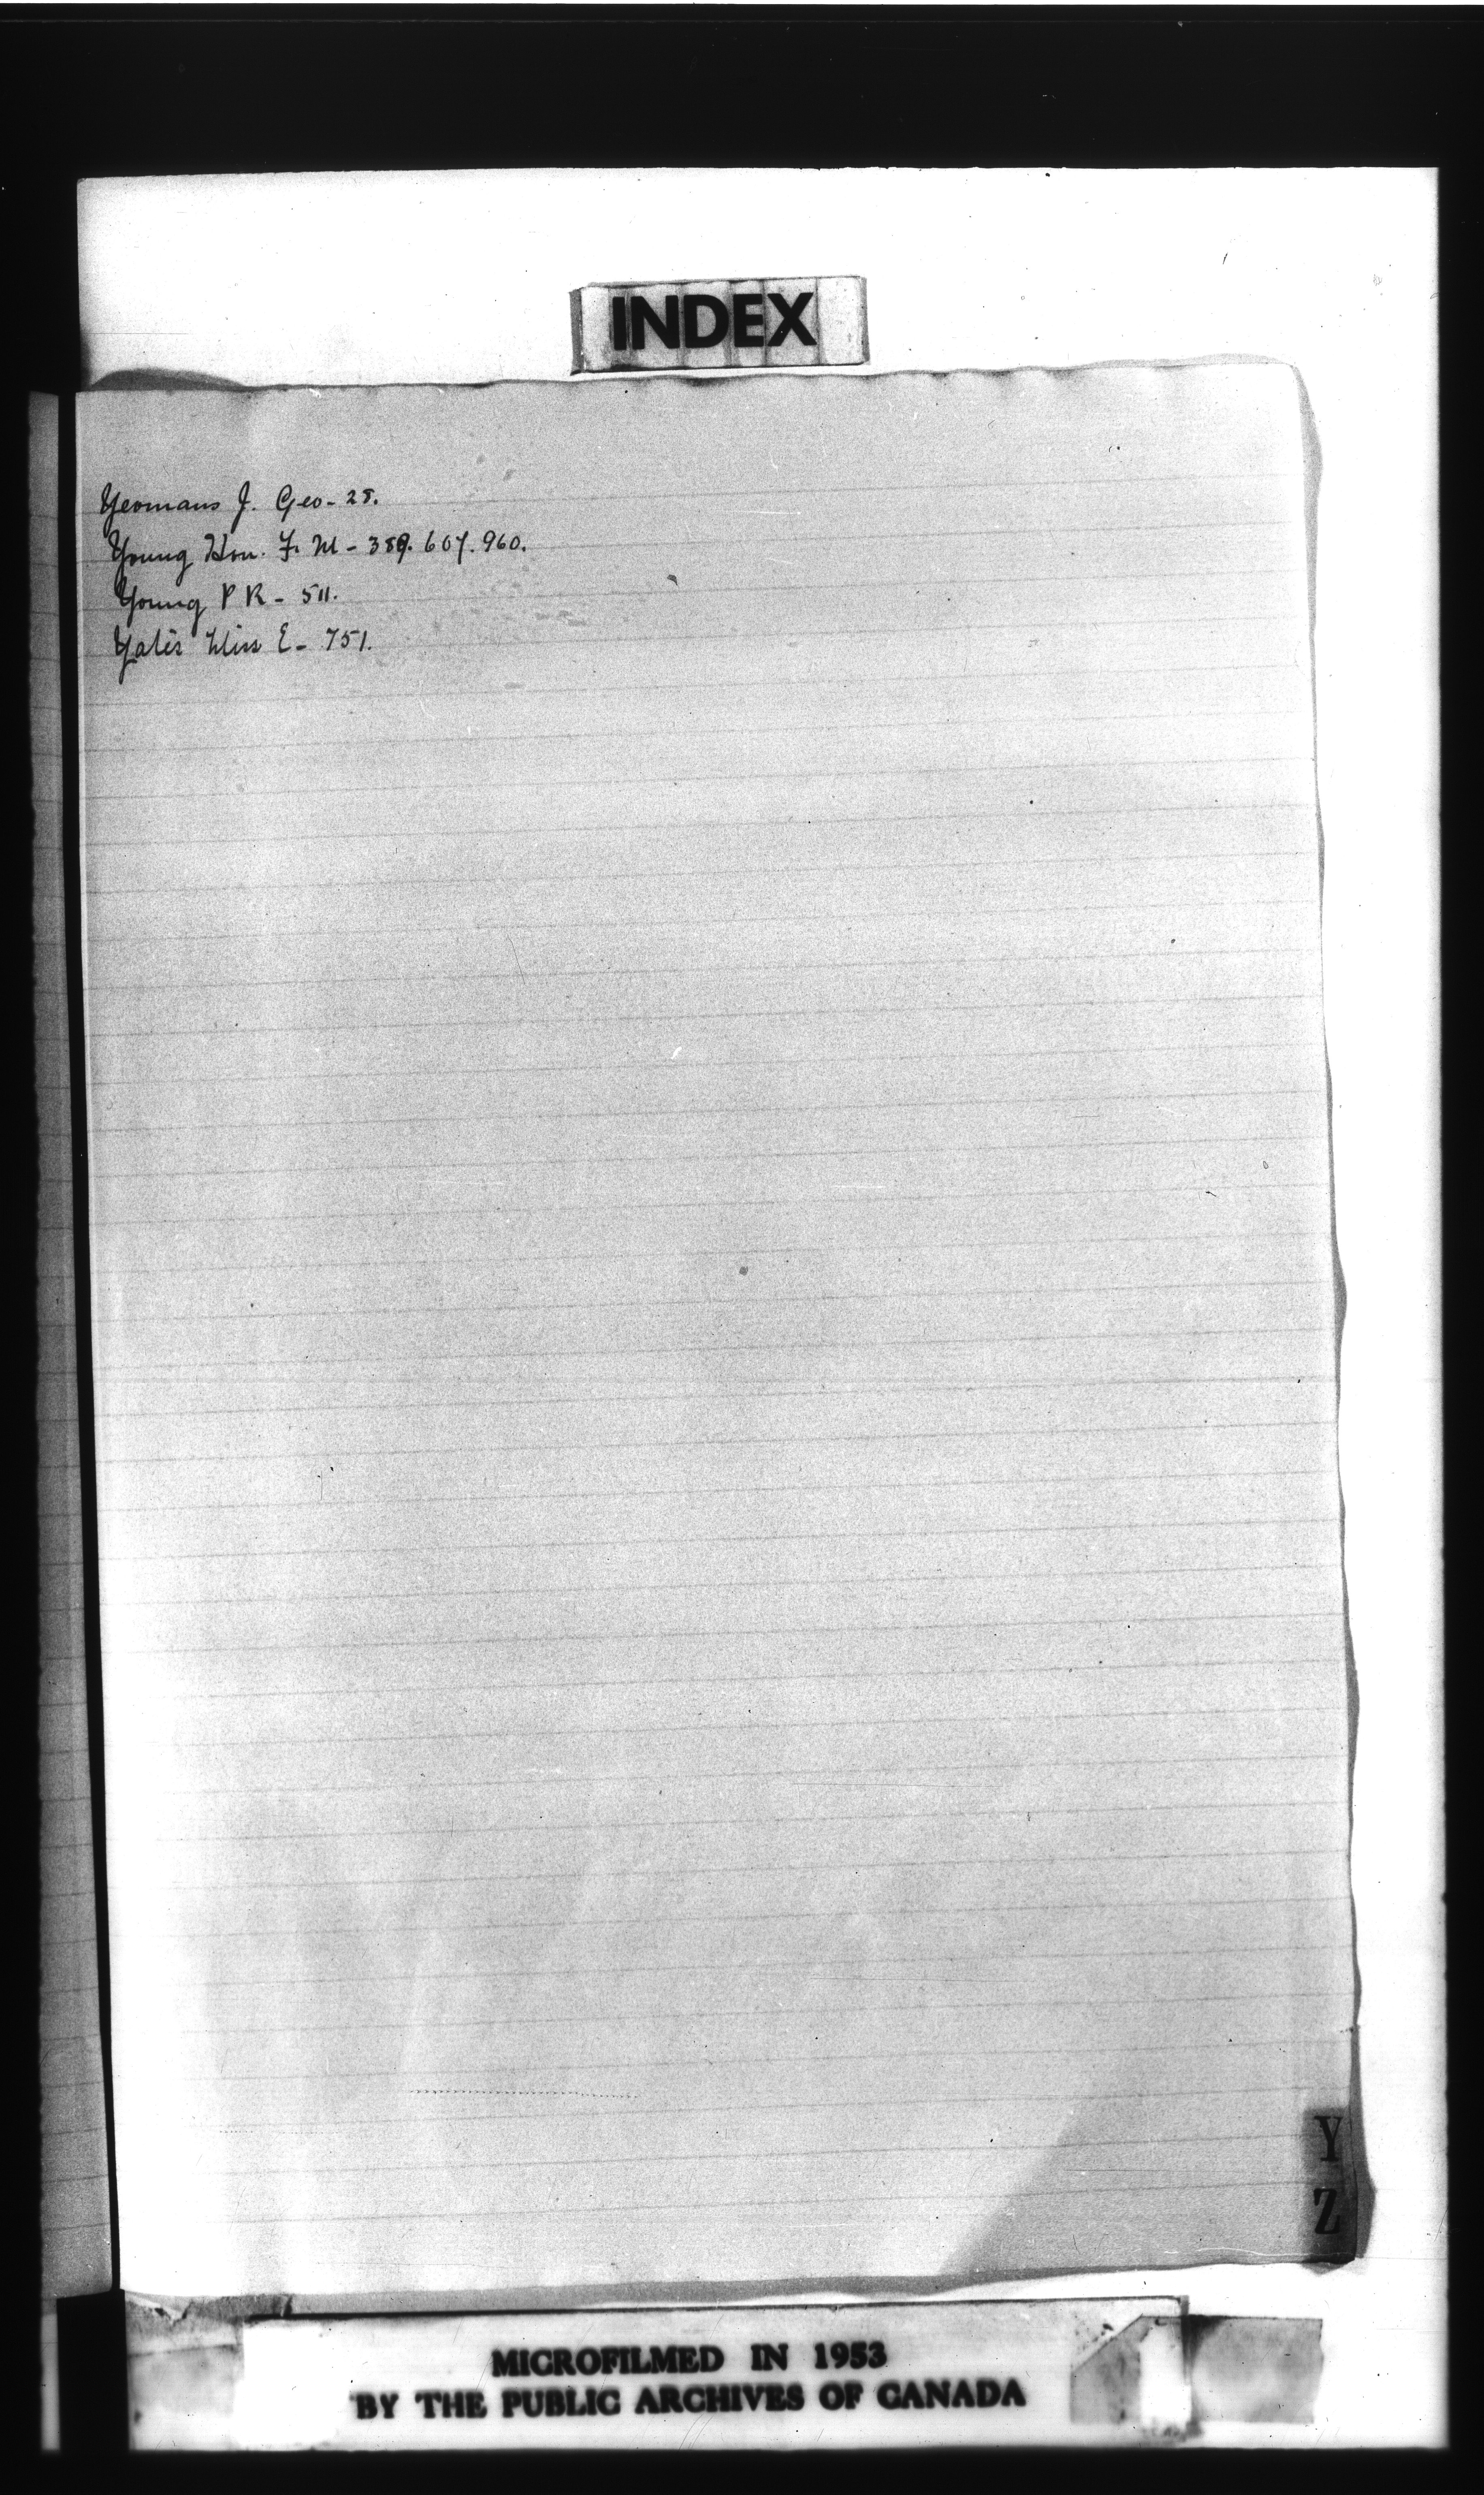 INDEX
Yeomans J. Geo - 28.
Young Hon. F. M - 389. 607. 960.
Young P R - 511.
Yates Miss E - 751.
Y
Z
MICROFILMED IN 1953
BY THE PUBLIC ARCHIVES OF CANADA